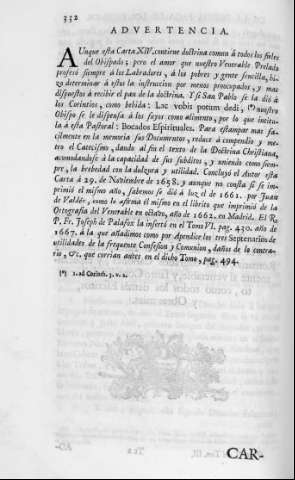 332
ADVERTENCIA.
AUnque esta Carta XIV. contiene doctrina comun à todos los fieles
del Obispado; pero el amor que nuestro Venerable Prelado
professó siempre à los Labradores, à los pobres y gente sencilla, hi-
zo determinar à estos la instruccion por menos preocupados, y mas
dispuestos à recibir el pan de la doctrina. Y si San Pablo se la dió à
los Corintios, como bebida: Lac vobis potum dedi, (*) nuestro
Obispo se le dispensa à los suyos como alimento, por lo que intitu-
la à esta Pastoral: Bocados Espirituales. Para estampar mas fa-
cilmente en la memoria sus Documentos, reduce à compendio y me-
tro el Catecismo, dando al fin el texto de la Doctrina Christiana,
acomodandose à la capacidad de sus subditos, y uniendo como siem-
pre, la brevedad con la dulzura y utilidad. Concluyó el Autor esta
Carta à 29. de Noviembre de 1658. y aunque no consta si se im-
primió el mismo año, sabemos se dió à luz el de 1661. por Juan
de Valdés, como lo afirma él mismo en el librito que imprimió de la
Ortografia del Venerable en octavo, año de 1662. en Madrid. El R.
P. Fr. Joseph de Palafox la insertó en el Tomo VI. pag. 430. año de
1667. à la que añadimos como por Apendice los tres Septenarios de
utilidades de la frequente Confesion y Comunion, daños de la contra-
rio, &c. que corrian antes en el dicho Tomo, pag. 494.
(*) 1. ad Corinth. 3. v. 2.
CAR-